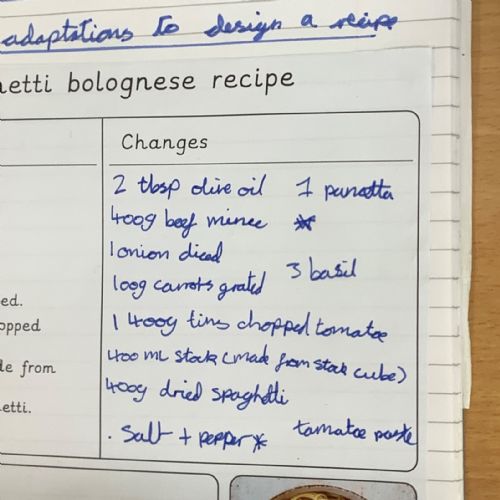 adaptations to design a recipe
etti bolognese recipe
Changes
2 tbsp olive oil 1 pancetta
400g beef mince *
1 onion diced
3 basil
100g carrots grated
ed.
1 400g tins chopped tomatoe
opped
400 ML stock (made from stock cube)
de from
400g dried spaghetti
etti.
. Salt + pepper * tomatoe paste